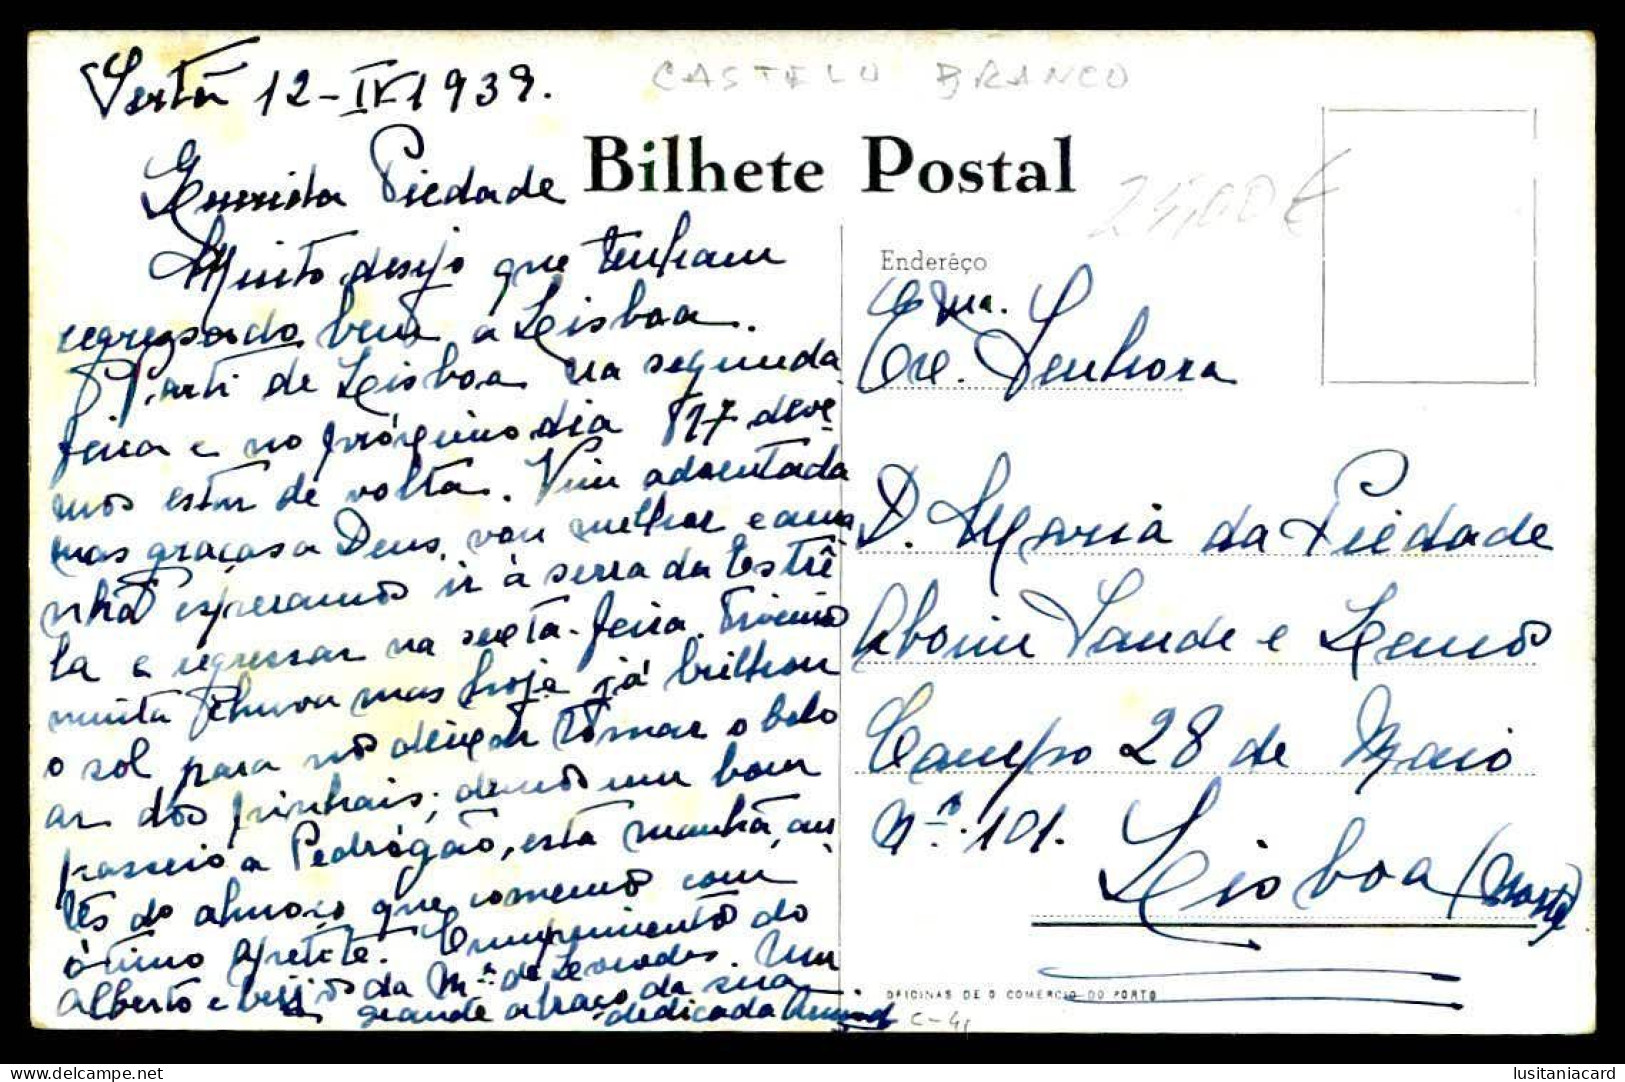 Sertã 12-IV-1939.
CASTELO BRANCO
Bilhete Postal
25,00€
Querida Piedade
Muito desejo que tenham
regressado bem a Lisboa.
Parti de Lisboa na segunda
feira e no próximo dia 17 deve
mos estar de volta. Vim adoentada
mas graças a Deus, vou melhor e ama
nhã esperamos ir à serra da Estrê
la e regressar na sexta-feira. Tivemos
muita chuva mas hoje já brilhou
o sol para nos deixar tomar o belo
ar dos pinhais; demos um bom
passeio a Pedrógão, esta manhã, an
tes do almoço que comemos com
ótimo apetite. Cumprimentos do
Alberto e beijos da Mª de Lourdes. Um
grande abraço da sua
dedicada
Enderêço
Exma.
Sre. Senhora
D. Maria da Piedade
Aboim Sande e Lemos
Campo 28 de Maio
Nº. 101.
Lisboa (Norte)
OFICINAS DE O COMERCIO DO PORTO
C-41
lusitaniacard